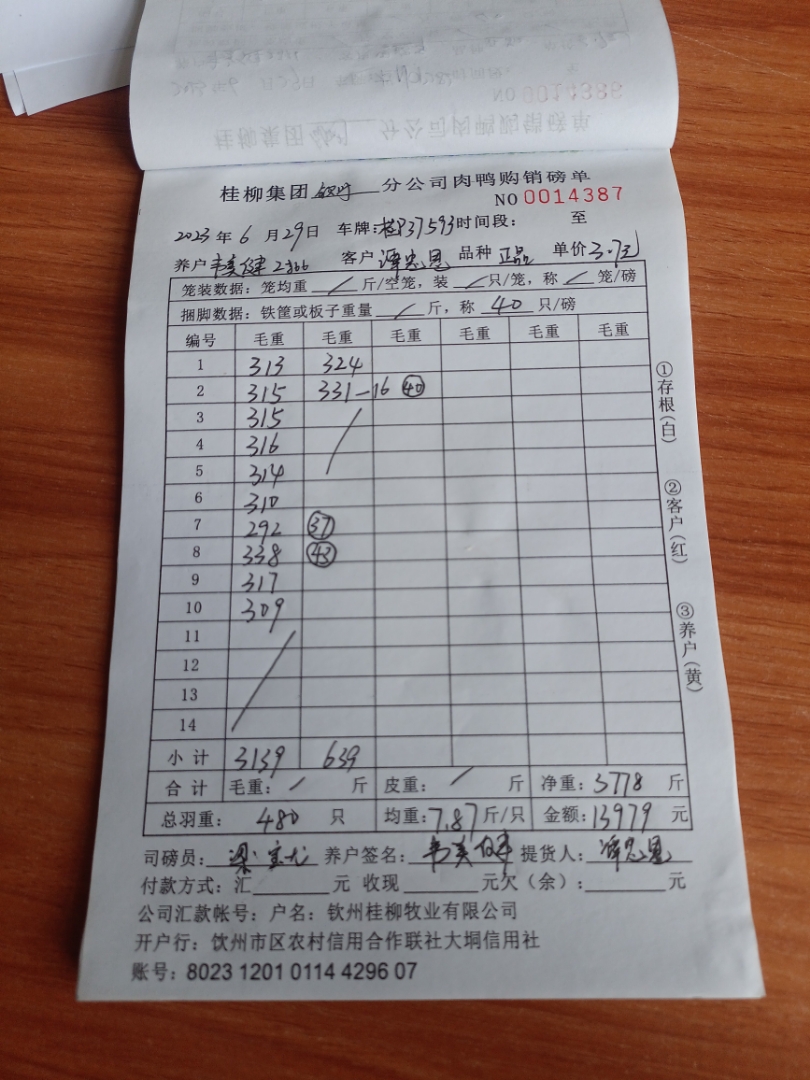 NO 0014386
桂柳集团 分公司肉鸭购销磅单
桂柳集团 分公司肉鸭购销磅单
NO 0014387
2023年6月29日 车牌:桂P37593时间段: 至
养户 韦美健 2366 客户 谭忠恩 品种 正品 单价3.7元
笼装数据: 笼均重 / 斤/空笼, 装 / 只/笼, 称 / 笼/磅
捆脚数据: 铁筐或板子重量 / 斤, 称 40 只/磅
编号 毛重 毛重 毛重 毛重 毛重 毛重
1 313 324
2 315 331-16 ㊵
3 315 /
4 316
5 314
6 310
7 292 ㊲
8 338 ㊸
9 317
10 309
11 /
12
13
14
小计 3139 639
合计 毛重: / 斤 皮重: / 斤 净重: 3778 斤
总羽重: 480 只 均重:7.87斤/只 金额:13979元
司磅员: 梁宝尤 养户签名: 韦美健 提货人: 谭忠恩
付款方式: 汇 元 收现 元欠(余): 元
公司汇款帐号: 户名: 钦州桂柳牧业有限公司
开户行: 饮州市区农村信用合作联社大垌信用社
账号: 8023 1201 0114 4296 07
①存根(白)
②客户(红)
③养户(黄)